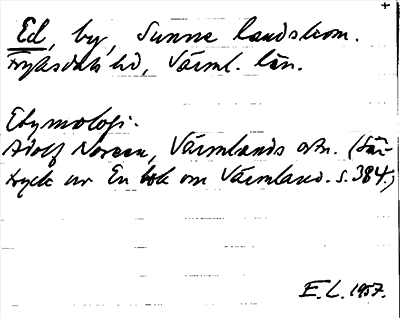 Ed, by, Sunne landskom.
Fryksdals hd, Värml. län.
Etymologi.
Adolf Noreen, Värmlands ortn. (Sär-
tryck ur En bok om Värmland. s. 384.)
E. L. 1957.